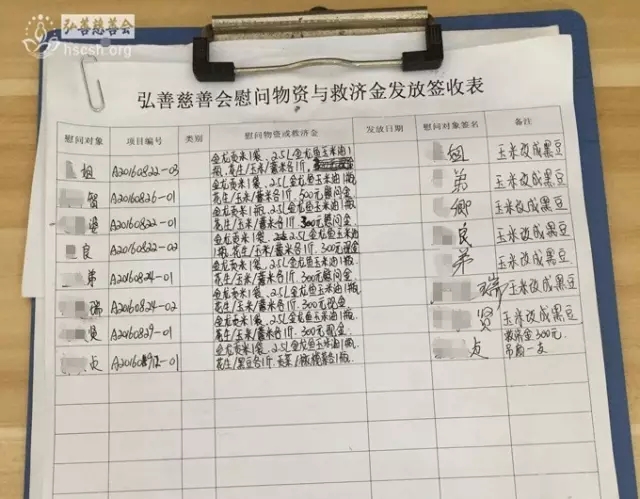 弘善慈善会
hscsh.org
弘善慈善会慰问物资与救济金发放签收表
慰问对象 项目编号 类别 慰问物资或救济金 发放日期 慰问对象签名 备注
姐 A20160822-03 金龙贡米1袋、2.5L金龙鱼玉米油1瓶、花生/玉米/薏米各1斤 姐 玉米改成黑豆
智 A20160826-01 金龙贡米1袋、2.5L金龙鱼玉米油1瓶、花生/玉米/薏米各1斤、300元慰问金 弟 玉米改成黑豆
A20160822-01 花生/玉米/薏米各1斤、300元慰问金 卿 玉米改成黑豆
良 A20160822-02 金龙贡米1袋、2.5L金龙鱼玉米油1瓶、花生/玉米/薏米各1斤、300元现金 良 玉米改成黑豆
弟 A20160824-01 金龙贡米1袋、2.5L金龙鱼玉米油1瓶、花生/玉米/薏米各1斤、300元慰问金 弟 玉米改成黑豆
瑞 A20160824-02 金龙贡米1袋、2.5L金龙鱼玉米油1瓶、花生/玉米/薏米各1斤、300元现金 瑞 玉米改成黑豆
贤 A20160829-01 金龙贡米1袋、2.5L金龙鱼玉米油1瓶、花生/玉米/薏米各1斤、300元现金 贤 玉米改成黑豆
贞 金龙贡米1袋、2.5L金龙鱼玉米油1瓶、花生/黑豆各1斤 贞 救济金300元